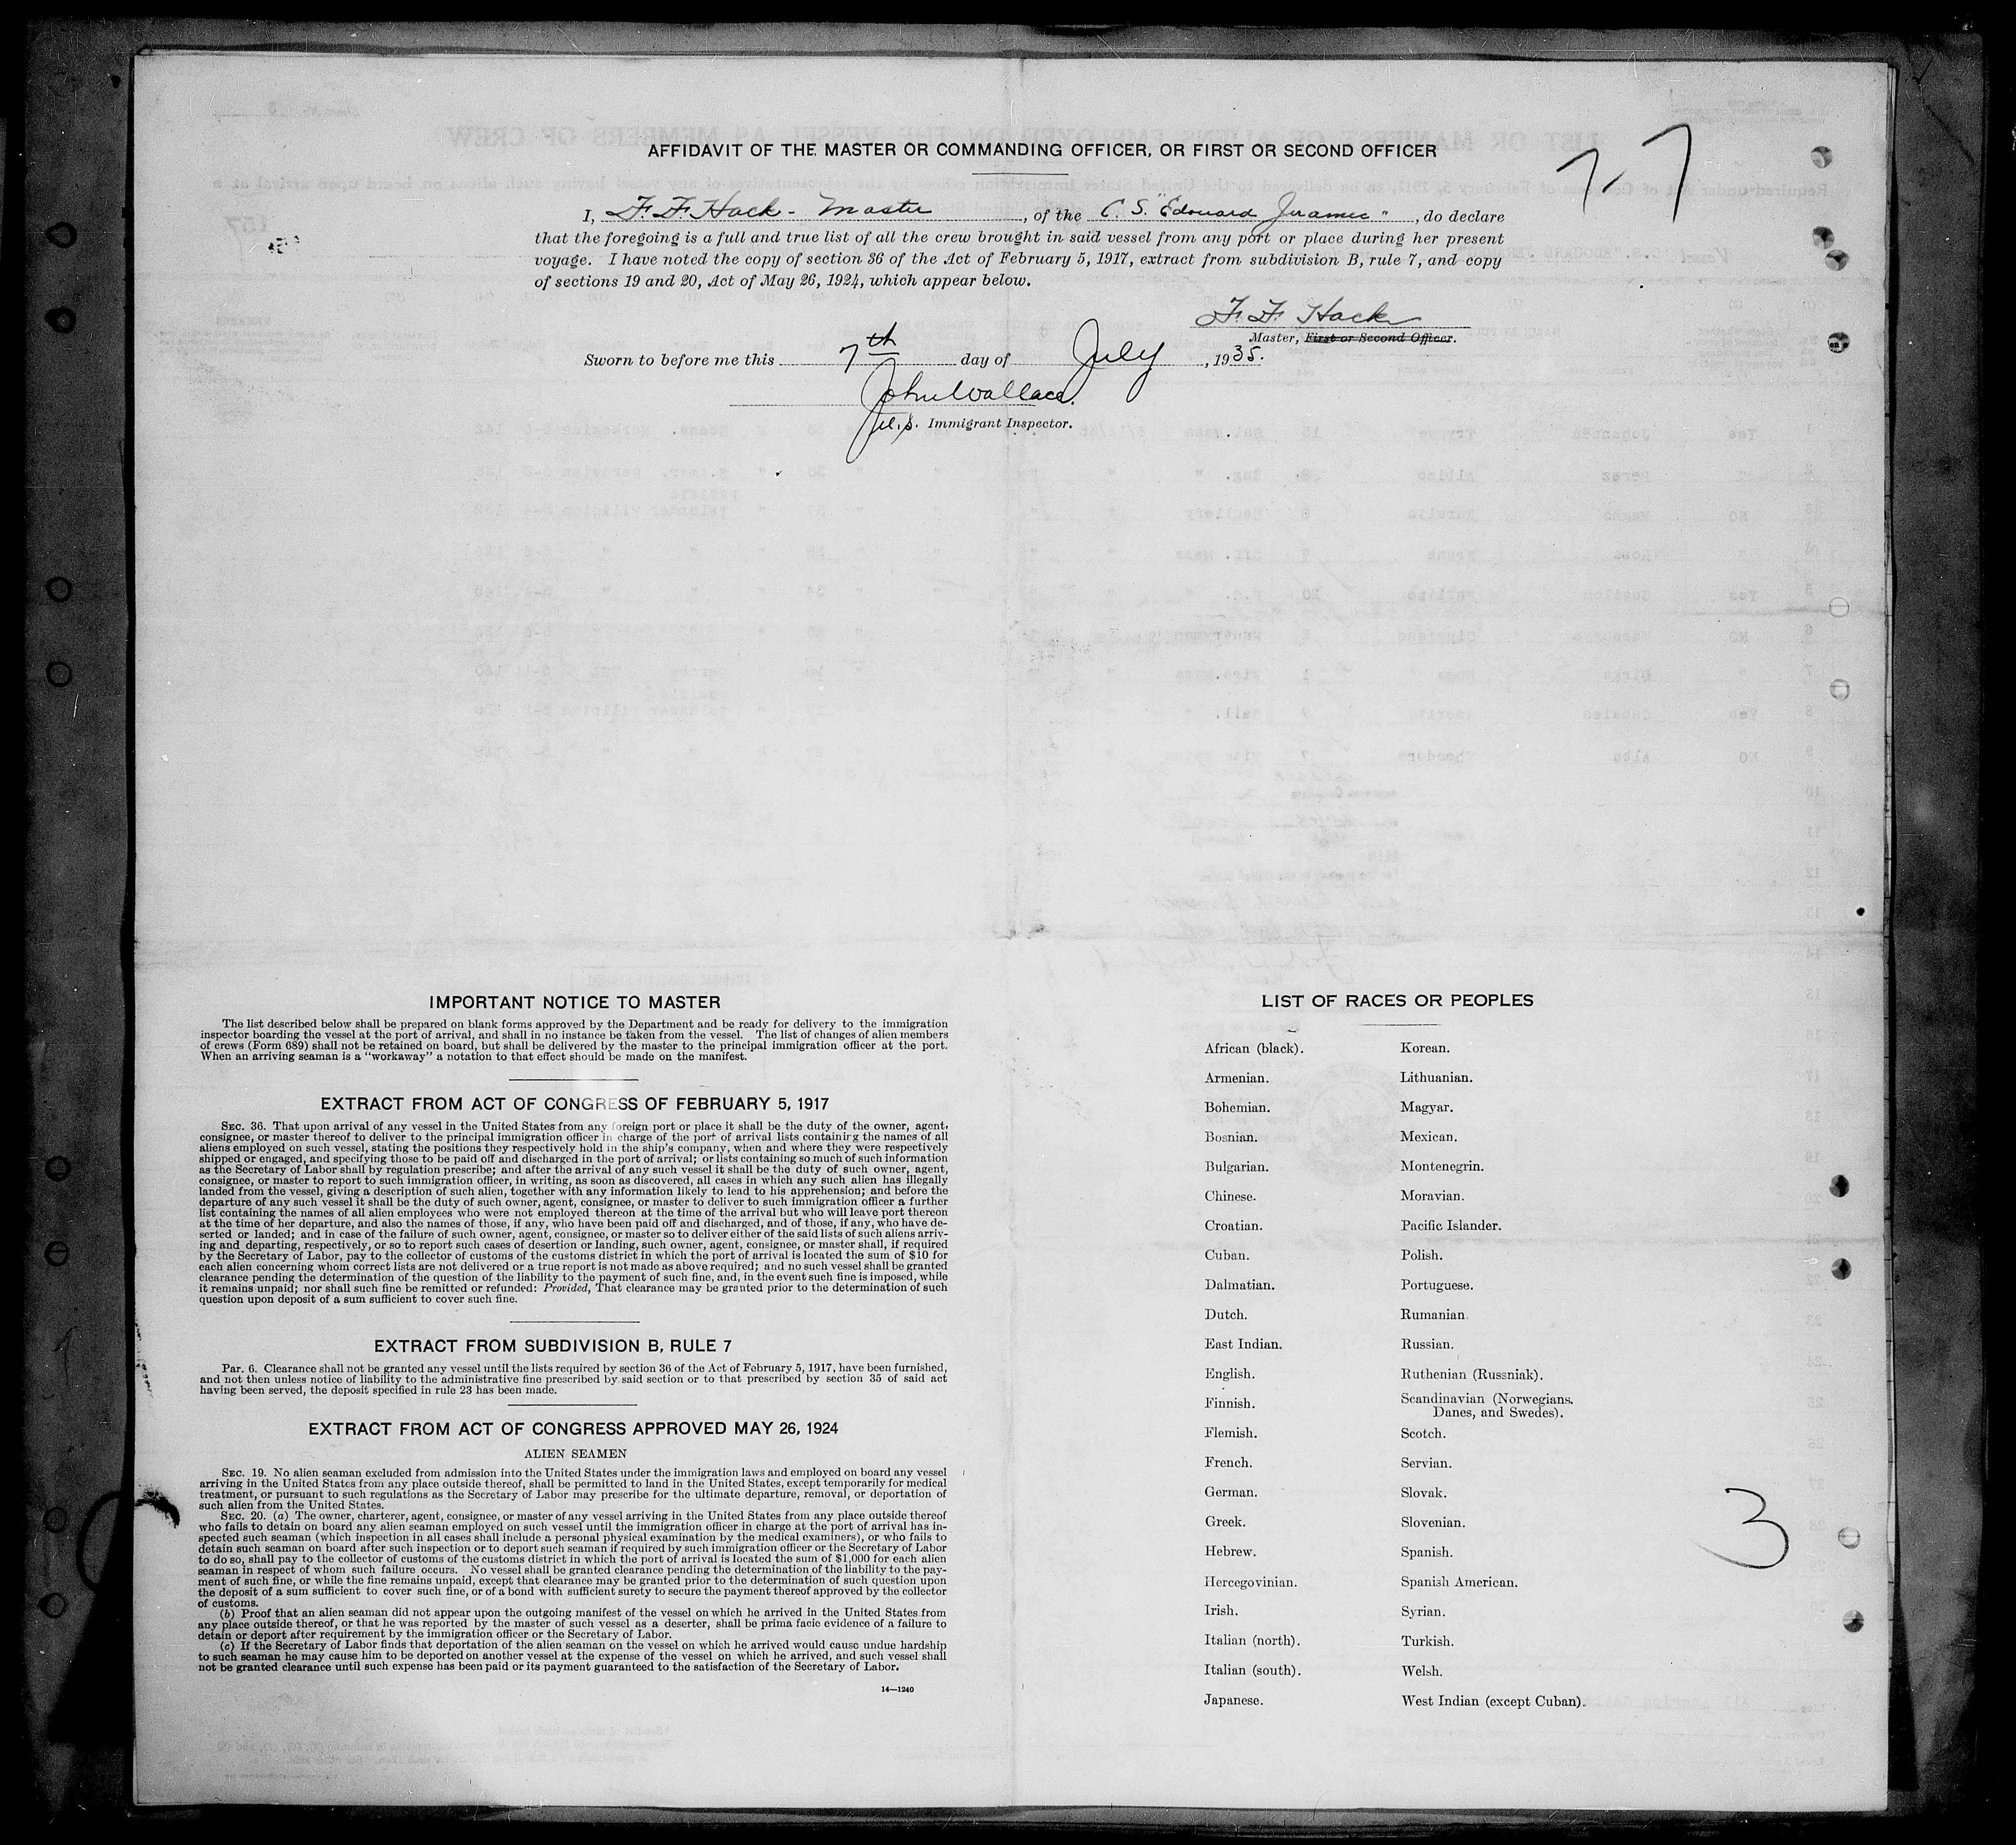 AFFIDAVIT OF THE MASTER OR COMMANDING OFFICER, OR FIRST OR SECOND OFFICER
7-7
I, F. F. Hack - Master, of the C. S. "Edouard Jeramec", do declare
that the foregoing is a full and true list of all the crew brought in said vessel from any port or place during her present
voyage. I have noted the copy of section 36 of the Act of February 5, 1917, extract from subdivision B, rule 7, and copy
of sections 19 and 20, Act of May 26, 1924, which appear below.
F. F. Hack
Master, First or Second Officer.
Sworn to before me this 7th day of July, 1935.
John Wallace.
U. S. Immigrant Inspector.
IMPORTANT NOTICE TO MASTER
The list described below shall be prepared on blank forms approved by the Department and be ready for delivery to the immigration
inspector boarding the vessel at the port of arrival, and shall in no instance be taken from the vessel. The list of changes of alien members
of crews (Form 689) shall not be retained on board, but shall be delivered by the master to the principal immigration officer at the port.
When an arriving seaman is a "workaway" a notation to that effect should be made on the manifest.
EXTRACT FROM ACT OF CONGRESS OF FEBRUARY 5, 1917
SEC. 36. That upon arrival of any vessel in the United States from any foreign port or place it shall be the duty of the owner, agent,
consignee, or master thereof to deliver to the principal immigration officer in charge of the port of arrival lists containing the names of all
aliens employed on such vessel, stating the positions they respectively hold in the ship's company, when and where they were respectively
shipped or engaged, and specifying those to be paid off and discharged in the port of arrival; or lists containing so much of such information
as the Secretary of Labor shall by regulation prescribe; and after the arrival of any such vessel it shall be the duty of such owner, agent,
consignee, or master to report to such immigration officer, in writing, as soon as discovered, all cases in which any such alien has illegally
landed from the vessel, giving a description of such alien, together with any information likely to lead to his apprehension; and before the
departure of any such vessel it shall be the duty of such owner, agent, consignee, or master to deliver to such immigration officer a further
list containing the names of all alien employees who were not employed thereon at the time of the arrival but who will leave port thereon
at the time of her departure, and also the names of those, if any, who have been paid off and discharged, and of those, if any, who have de-
serted or landed; and in case of the failure of such owner, agent, consignee, or master so to deliver either of the said lists of such aliens arriv-
ing and departing, respectively, or so to report such cases of desertion or landing, such owner, agent, consignee, or master shall, if required
by the Secretary of Labor, pay to the collector of customs of the customs district in which the port of arrival is located the sum of $10 for
each alien concerning whom correct lists are not delivered or a true report is not made as above required; and no such vessel shall be granted
clearance pending the determination of the question of the liability to the payment of such fine, and, in the event such fine is imposed, while
it remains unpaid; nor shall such fine be remitted or refunded: Provided, That clearance may be granted prior to the determination of such
question upon deposit of a sum sufficient to cover such fine.
EXTRACT FROM SUBDIVISION B, RULE 7
Par. 6. Clearance shall not be granted any vessel until the lists required by section 36 of the Act of February 5, 1917, have been furnished,
and not then unless notice of liability to the administrative fine prescribed by said section or to that prescribed by section 35 of said act
having been served, the deposit specified in rule 23 has been made.
EXTRACT FROM ACT OF CONGRESS APPROVED MAY 26, 1924
ALIEN SEAMEN
SEC. 19. No alien seaman excluded from admission into the United States under the immigration laws and employed on board any vessel
arriving in the United States from any place outside thereof, shall be permitted to land in the United States, except temporarily for medical
treatment, or pursuant to such regulations as the Secretary of Labor may prescribe for the ultimate departure, removal, or deportation of
such alien from the United States.
SEC. 20. (a) The owner, charterer, agent, consignee, or master of any vessel arriving in the United States from any place outside thereof
who fails to detain on board any alien seaman employed on such vessel until the immigration officer in charge at the port of arrival has in-
spected such seaman (which inspection in all cases shall include a personal physical examination by the medical examiners), or who fails to
detain such seaman on board after such inspection or to deport such seaman if required by such immigration officer or the Secretary of Labor
to do so, shall pay to the collector of customs of the customs district in which the port of arrival is located the sum of $1,000 for each alien
seaman in respect of whom such failure occurs. No vessel shall be granted clearance pending the determination of the liability to the pay-
ment of such fine, or while the fine remains unpaid, except that clearance may be granted prior to the determination of such question upon
the deposit of a sum sufficient to cover such fine, or of a bond with sufficient surety to secure the payment thereof approved by the collector
of customs.
(b) Proof that an alien seaman did not appear upon the outgoing manifest of the vessel on which he arrived in the United States from
any place outside thereof, or that he was reported by the master of such vessel as a deserter, shall be prima facie evidence of a failure to
detain or deport after requirement by the immigration officer or the Secretary of Labor.
(c) If the Secretary of Labor finds that deportation of the alien seaman on the vessel on which he arrived would cause undue hardship
to such seaman he may cause him to be deported on another vessel at the expense of the vessel on which he arrived, and such vessel shall
not be granted clearance until such expense has been paid or its payment guaranteed to the satisfaction of the Secretary of Labor.
14—1240
LIST OF RACES OR PEOPLES
African (black).
Armenian.
Bohemian.
Bosnian.
Bulgarian.
Chinese.
Croatian.
Cuban.
Dalmatian.
Dutch.
East Indian.
English.
Finnish.
Flemish.
French.
German.
Greek.
Hebrew.
Hercegovinian.
Irish.
Italian (north).
Italian (south).
Japanese.
Korean.
Lithuanian.
Magyar.
Mexican.
Montenegrin.
Moravian.
Pacific Islander.
Polish.
Portuguese.
Rumanian.
Russian.
Ruthenian (Russniak).
Scandinavian (Norwegians,
Danes, and Swedes).
Scotch.
Servian.
Slovak.
Slovenian.
Spanish.
Spanish American.
Syrian.
Turkish.
Welsh.
West Indian (except Cuban).
3